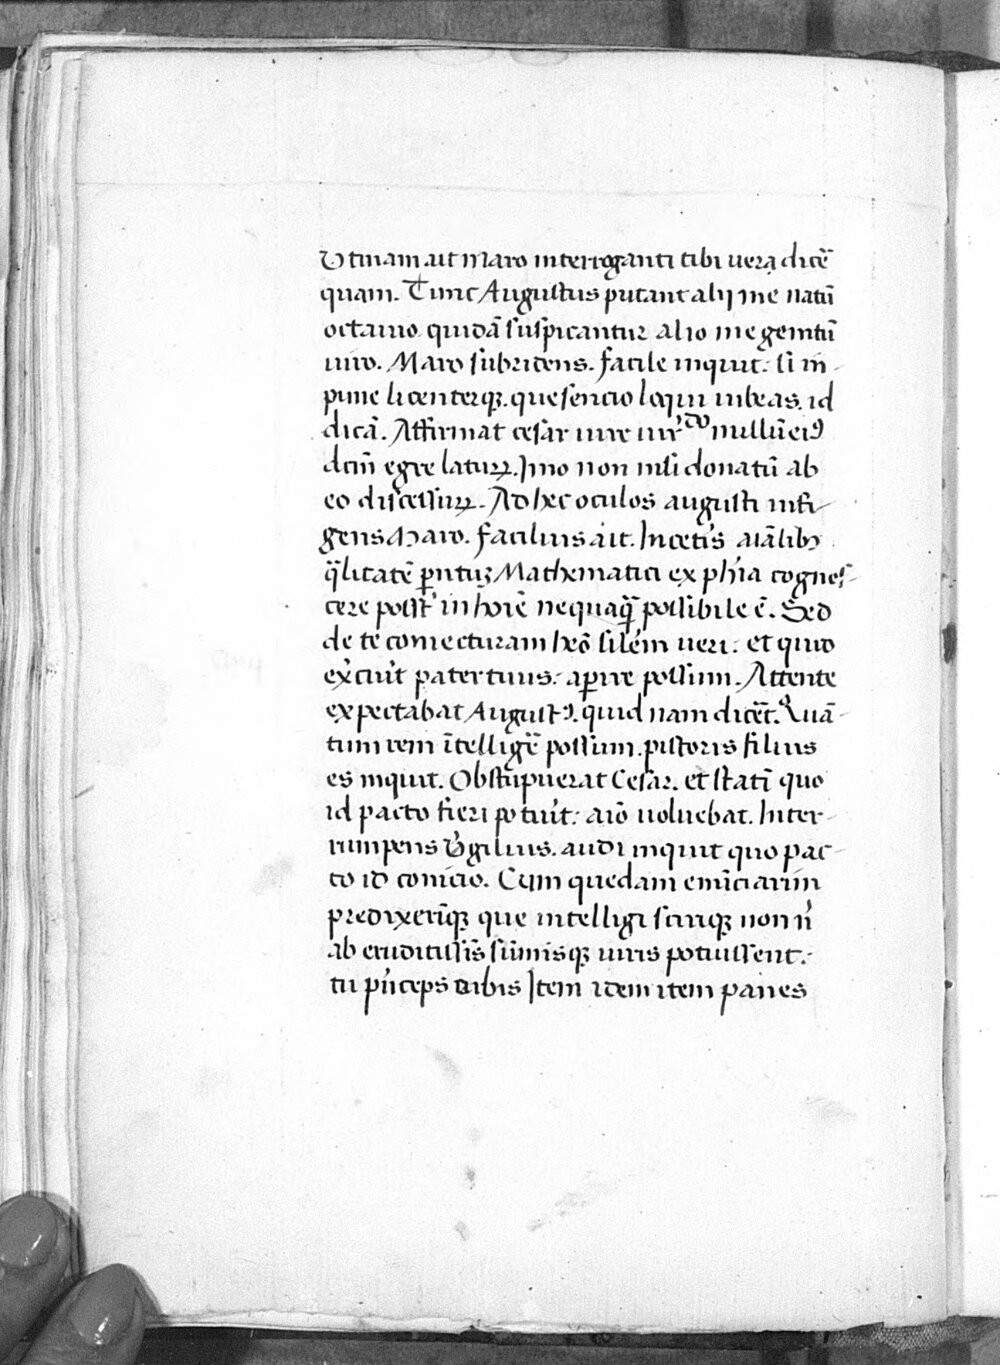 Utinam ait Maro interroganti tibi uera dicē
quam. Tunc Augustus putant alij me natū
octauio quidā suspicantur alio me genitū
uiro. Maro subridens. facile inquit: si in-
pune licenterqꝫ. que sencio loqui iubeas. id
dicā. Affirmat cesar iure iur͛do nullū eiꝰ
dcm̄ egre laturꝝ. Imo non nisi donatū ab
eo discessurꝝ. Ad hec oculos augusti infi-
gens Maro. facilius ait. In cet͛is aīalibꝫ
q̄litatē ꝑitus Mathematici ex phīa cognos-
cere posst͛ in hoīe nequaq̄ possibile ē. Sed
de te coniecturam heō silēm ueri: et quid
exc͛cuit pater tuus: aꝑire possim. Attente
expectabat Augustꝰ. quid nam dicēt. Quā-
tum rem ītelligē possum. pistoris filius
es inquit. Obstupuerat Cesar. et statī quo
id pacto fieri potuit: aīo uoluebat. Inter-
rumpens U͛gilius. audi inquit quo pac-
to id conicio. Cum quedam enūciarim
predixerīqꝫ que intelligi scirqꝫ non n͛
ab eruditissīs sūmisqꝫ uiris potuissent:
tu pn͛ceps orbis Item idem item panes